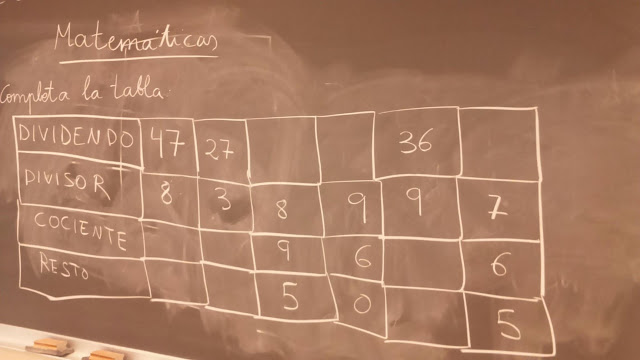 Matemáticas
Completa la tabla.
DIVIDENDO 47 27 36
DIVISOR 8 3 8 9 9 7
COCIENTE 9 6 6
RESTO 5 0 5